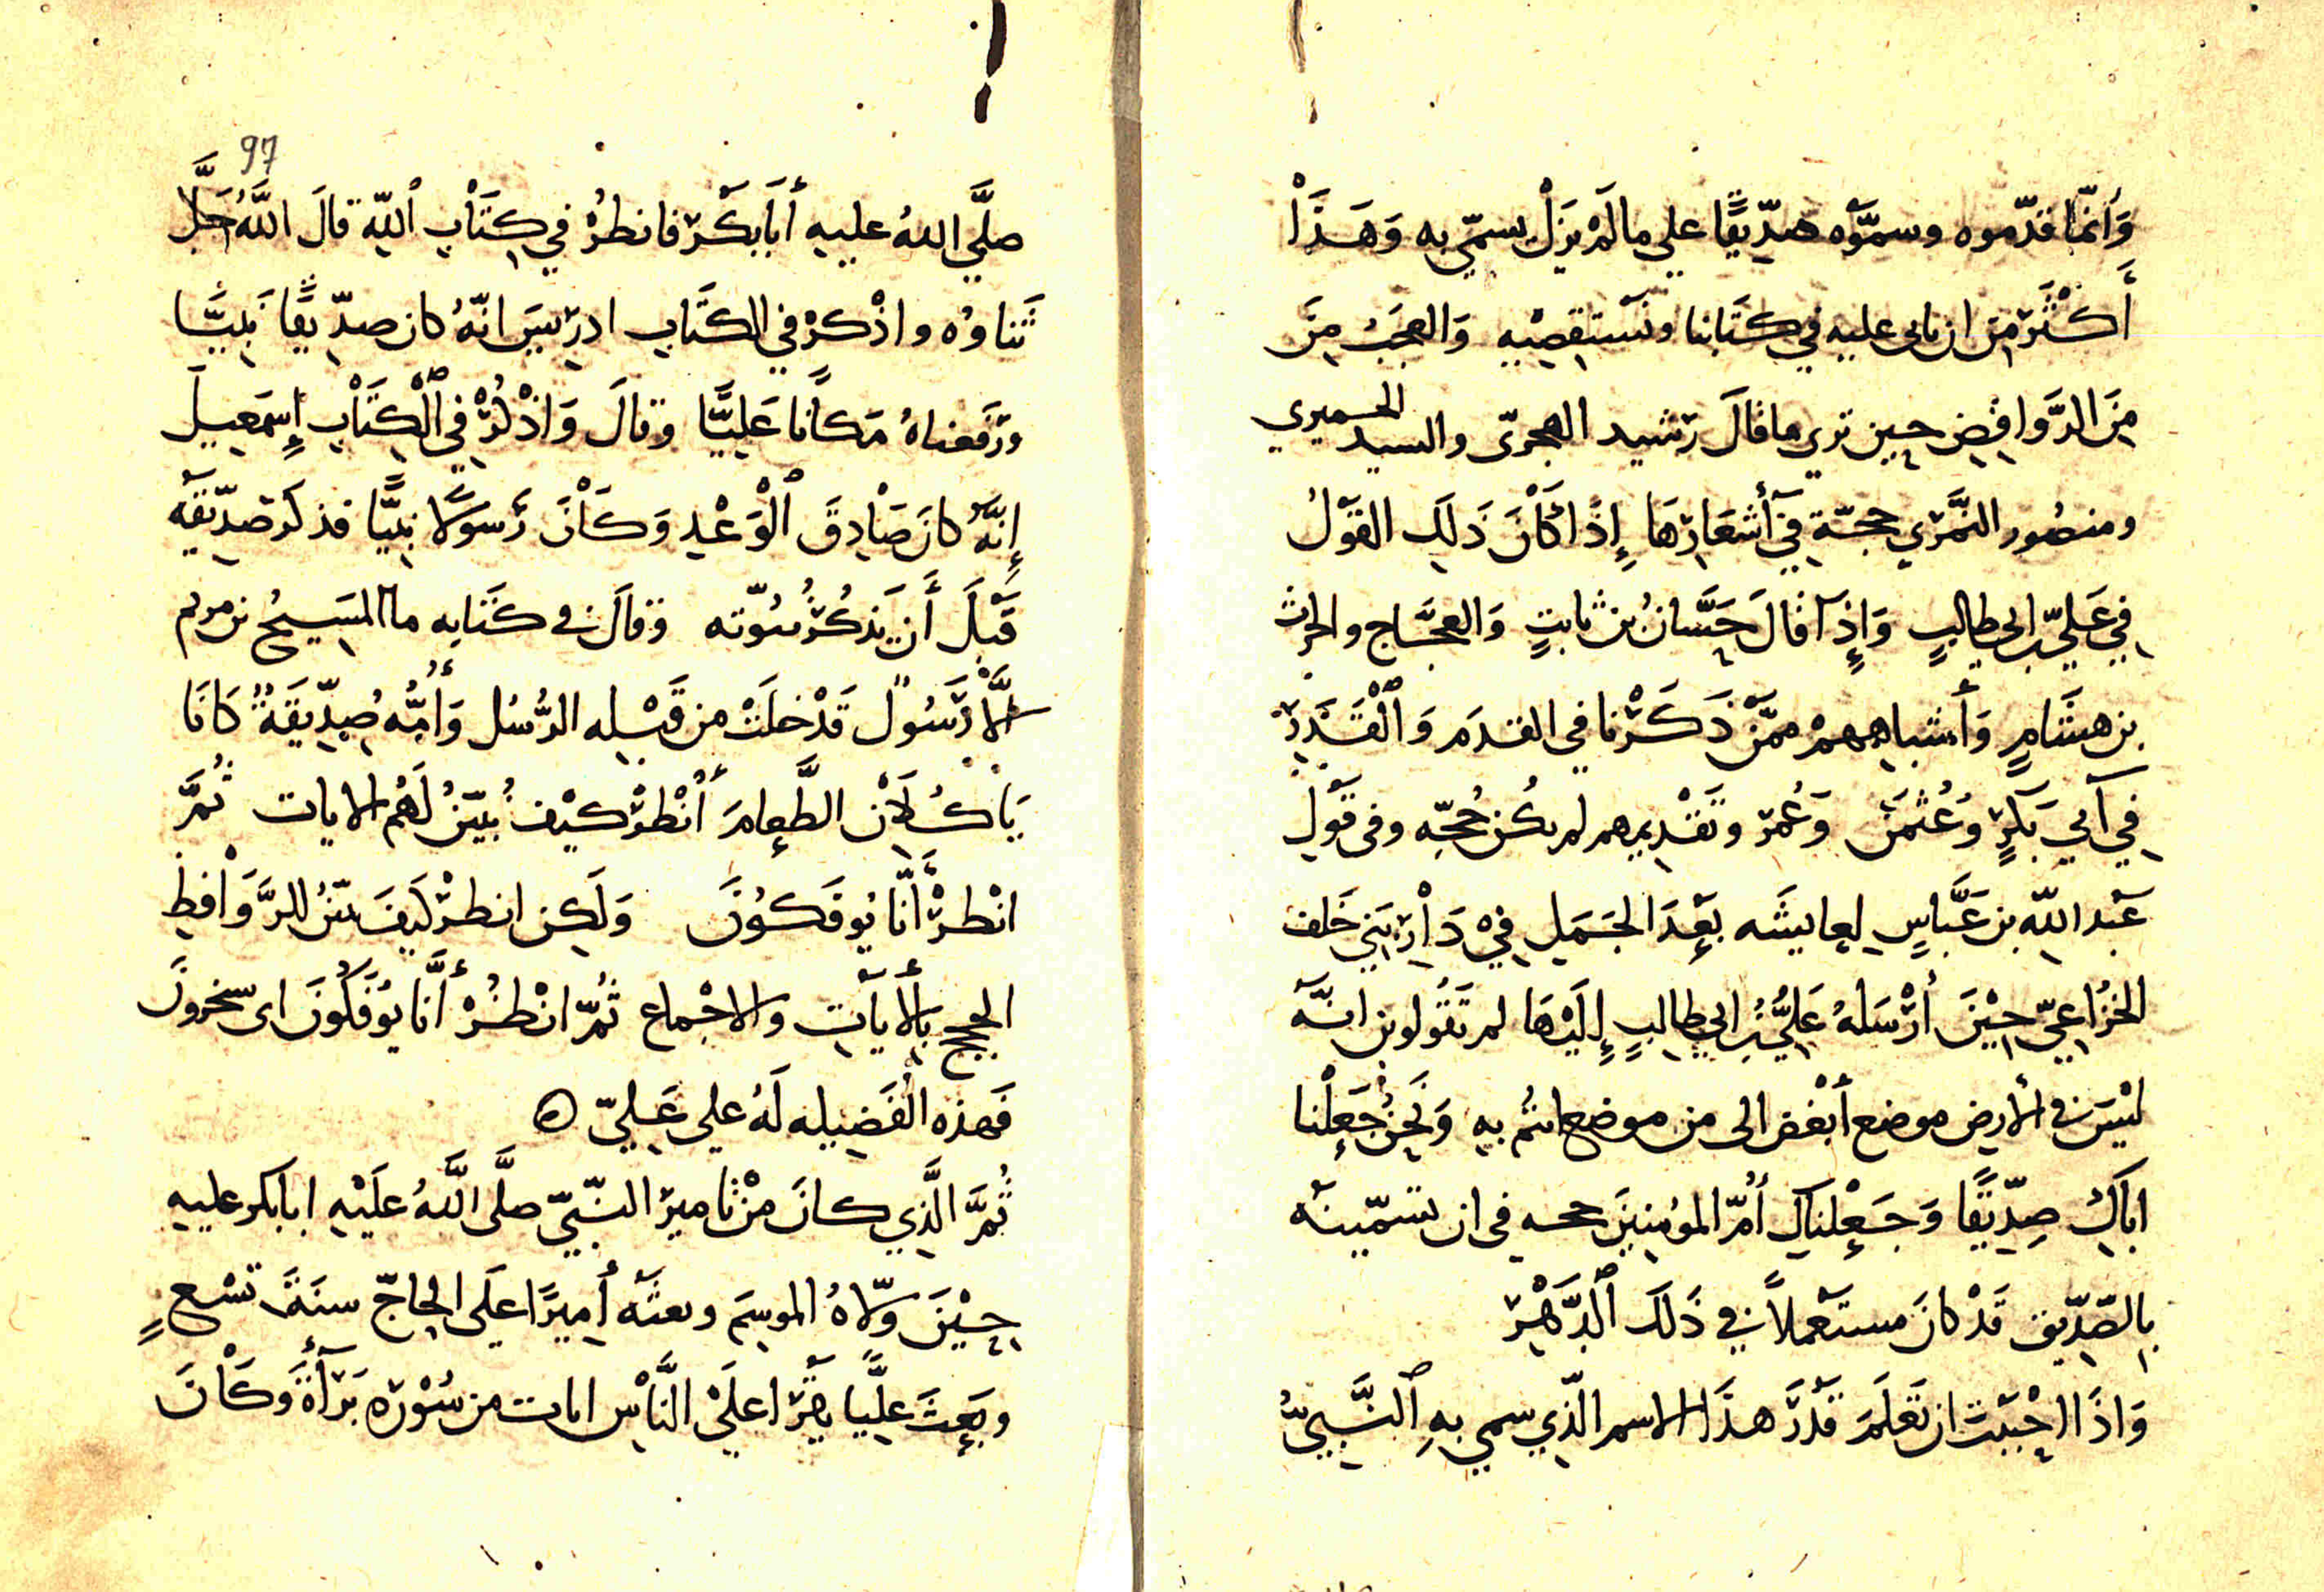 وَانمّا قدّموه وسمَّوْه صِدّيقًا علي ما لَمْ يَزَلْ يسمّي به وَهَذَاْ
أَكْثَرَ مِنَ ان ناتى عليه في كتَابنا ونَسْتقصِيه وَالعجَبُ مِنَ
مِنَ الرَّوَافِضِ حِين تري ما قالَ رشيد الهجرىّ والسيد الحميري
ومنصُور النَّمَري حجّة في أَشعَارِهَا إِذَا كَاْنَ ذَلِكَ القَوْلُ
فِي عَليّ بن ابي طالِبٍ وَإِذَا قالَ حَسَّانُ بنُ ثابتٍ وَالعجَّاج والحرث
بن هشَامٍ وَأَشباههمْ ممَّنْ ذَكَرْنا في القدَم وَالْقَدْرِ
فِي أَبي بَكرٍ وَعُثمَنَ وَعُمَر وَتَقْدِيمهم لم يكُن حُجّه وفى قَوْلِ
عَبْد اللّه بن عَبَّاسٍ لعايشَه بَعْدَ الجَمَلِ فِيْ دَاْرِ بَنِي خَلف
الخُزَاعِيّ حِيْنَ أَرْسَلهُ عَلِيُّ بْنُ ابي طالِبٍ إِلَيْهَا لم تَقُولون انّه
لَيْسَ في الأرض موضع أَبْغض الى من موضع انتُم به وَنَحْنُ جَعَلْنا
اباكِ صِدِّيقًا وَجَعَلْناكِ أُمّ المؤمِنِينَ حجه في ان تسمّيتَه
بِالصّدّيق قَدْ كانَ مستَعْملاً في ذَلكَ الدَّهْرِ
وَاذَا احْبَبْتَ ان تَعْلَمَ قَدْرَ هذَا الاسم الّذِي سمي بِهِ النَّبيُّ
97
صلَّي اللهُ عليه أَبَابَكْر فانظُرْ فِي كِتَابِ اللّه قالَ اللَّهُ جَلَّ
ثَناوُه واذْكرْ في الكتَابِ ادريسَ انّهُ كان صدّيقًا نَبيَّا
ورَفعناهُ مَكَانا عَليَّا وقالَ وَاذْكُرْ فِي الْكِتَاْبِ إِسمَعِيلَ
إِنَّهُ كانَ صَاْدِقَ الْوَعْدِ وَكَاْنَ رَسوْلا نبيًّا فذكَر صدّيقَه
قَبْلَ أَن يَذكُرَ نُبُوّته وَقالَ في كتَابِه ما المَسيحُ بن مريم
الاّ رَسُولٌ قَدْ خلَتْ من قَبْلِه الرُّسُل وَأُمُّه صِدّيقَةٌ كَانَا
يَاْكُلَاْنِ الطَّعامَ أُنْظرْ كيْف نُبيّنُ لَهُم الايات ثُمَّ
انْظرْ أَنَّا يُوفَكوُنَ وَلَكِن انظرْ كَيفَ نبيّنُ للرَّوَافِضِ
الحجج بِالأَيَاتِ وَالاجْماع ثُمّ انْظُرْ أَنَّا يُوفَكُونَ اى يسخرونَ
فَهذه الْفَضيله لَهُ علي عَليّ ه
ثُمَّ الَّذِي كانَ مِنْ تَاميرِ النّبيّ صلَّى اللَّهُ عَلَيْهِ ابابكر عليه
حِيْنَ وَلّاهُ الموسِمَ وبعثَه أَميرًا علَى الحاجّ سنَةَ تسْعٍ
وبَعثَ عليًّا يَقرَا علَيْ النَّاْسِ ايات من سُوْرَه بَرَأَةَ وَكَاْنَ